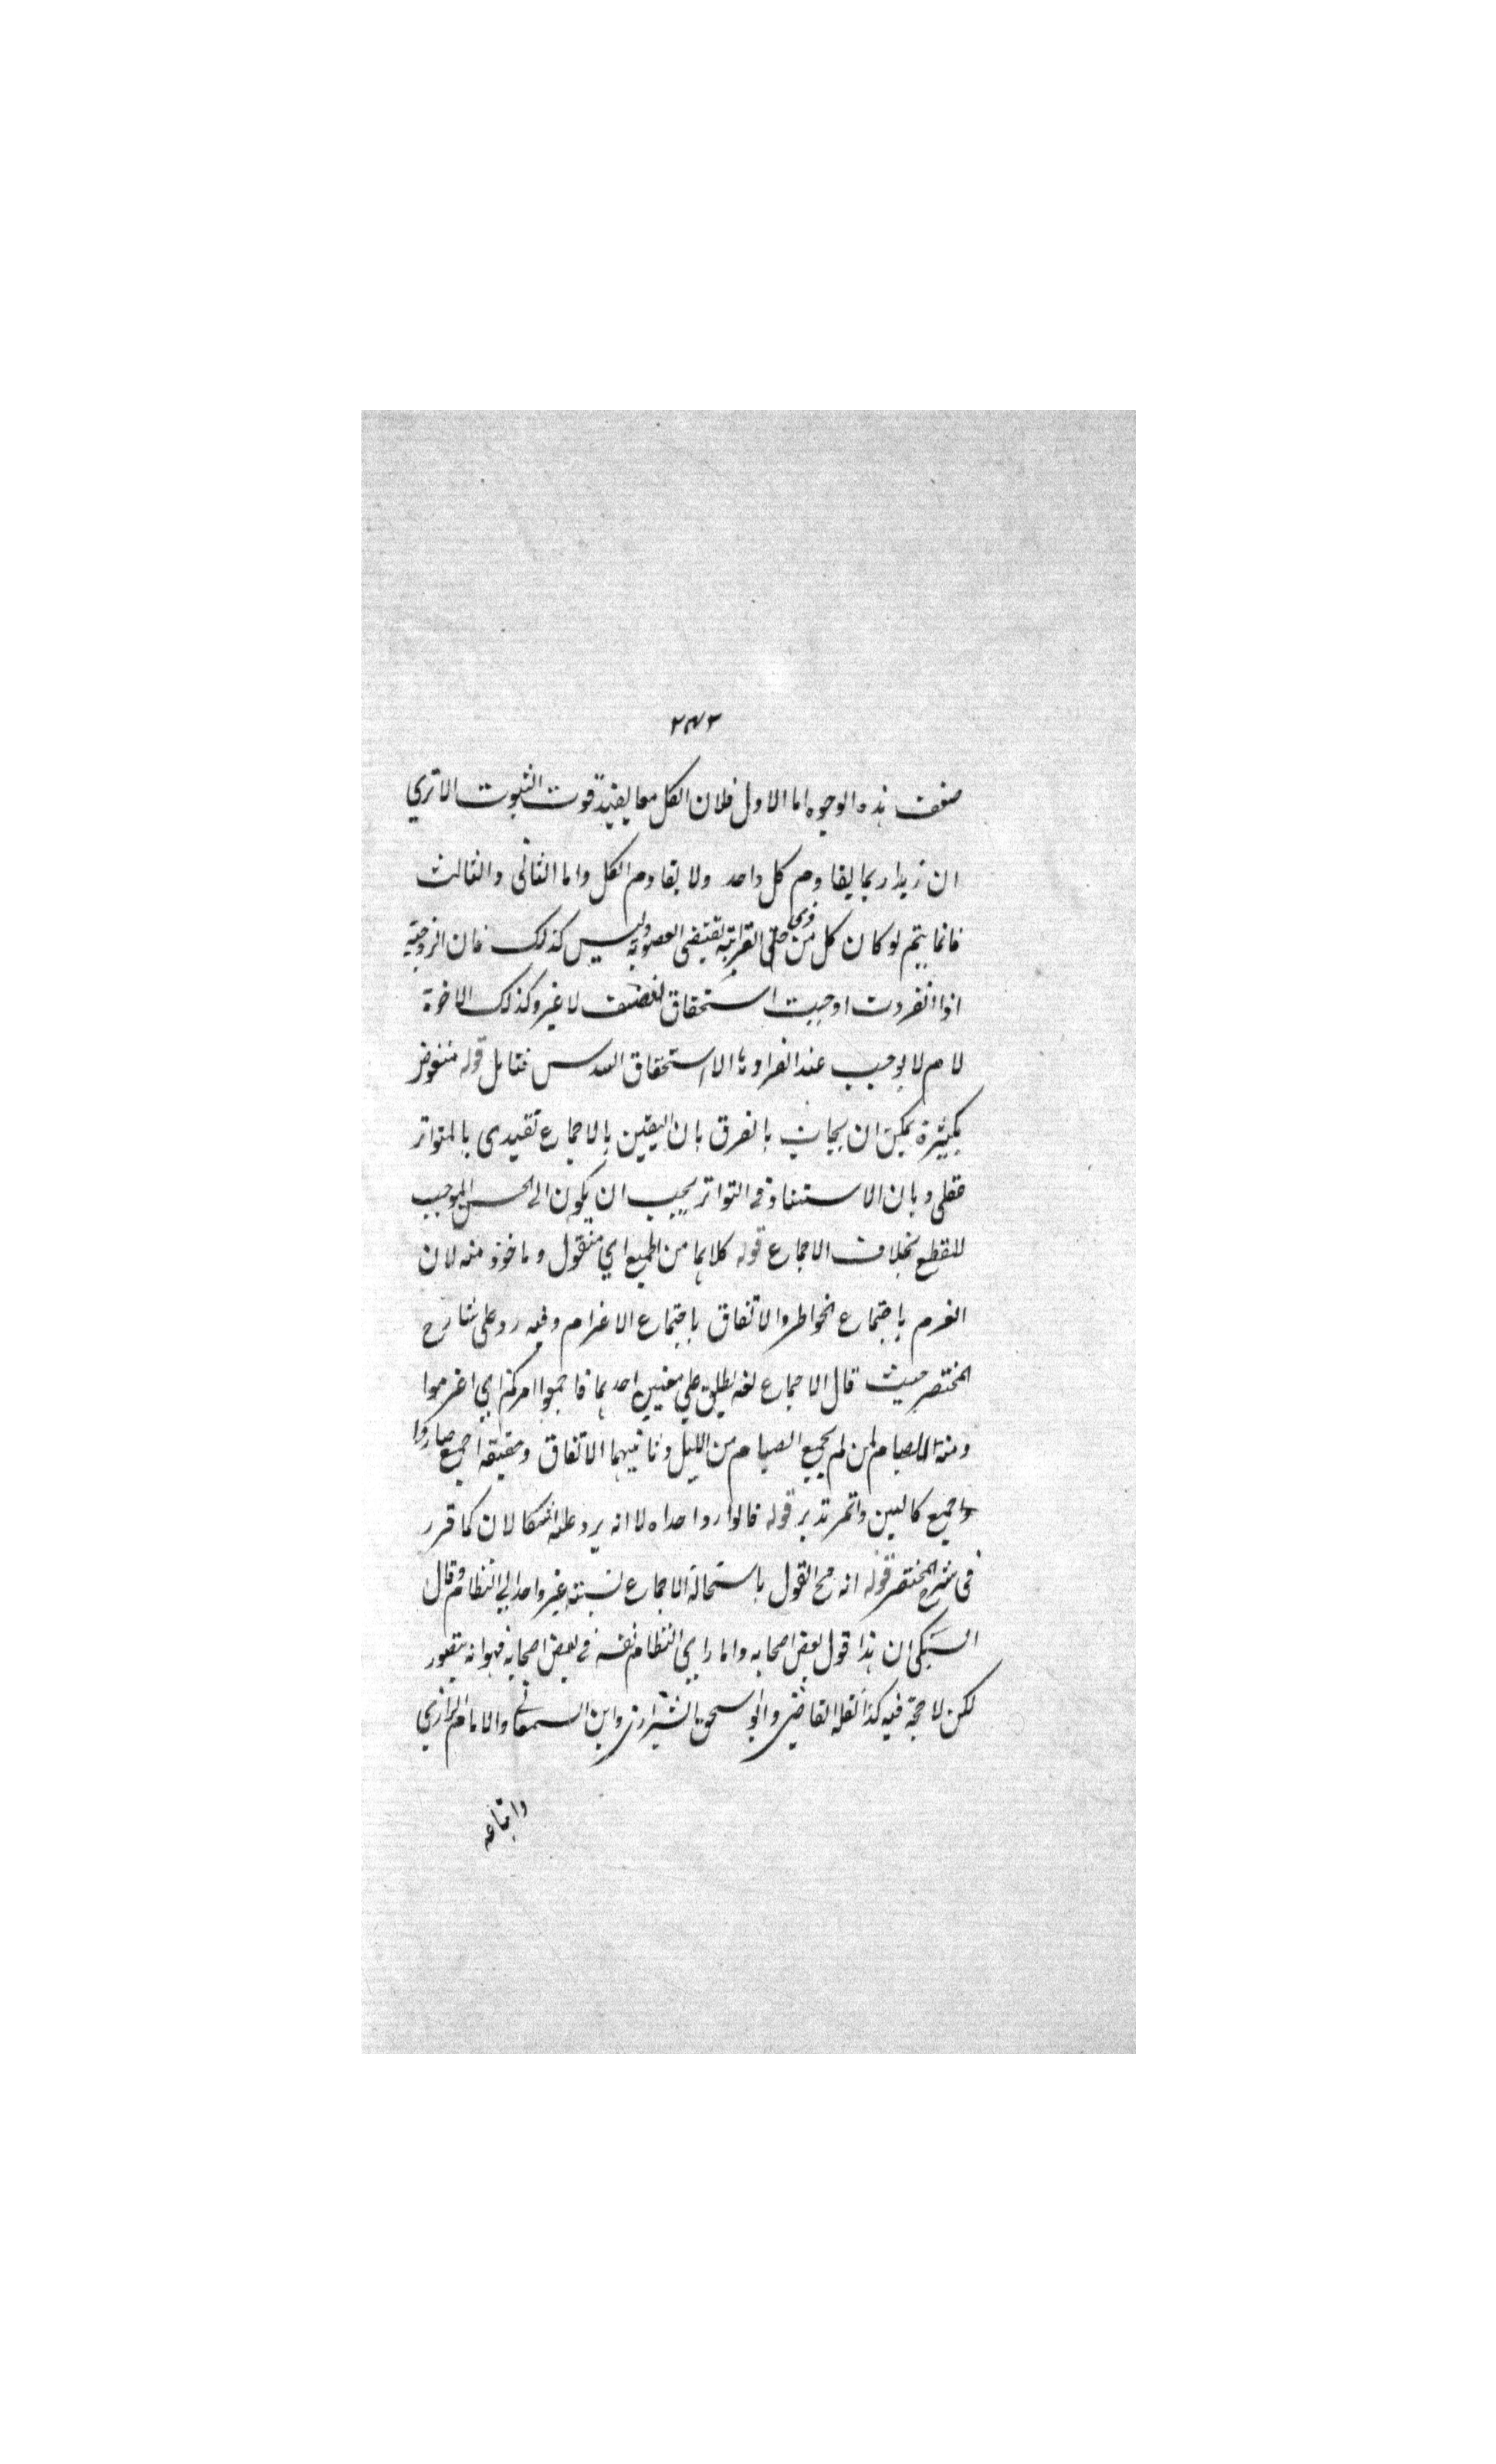 ٢٤٣
ضعف هذه الوجوه اما الاول فلان الكل معا يفيد قوت الثبوت الا تري
ان زيدا ربما يقاوم كل واحد ولا يقاوم الكل واما الثاني والثالث
فانما يتم لو كان كل من القرابة تقتضي العصوبة وليس كذلك فان الزوجية
اذا انفردت اوجبت استحقاق النصف لا غير وكذلك الاخوة
لام لا يوجب عند انفرادها الا استحقاق السدس فتامل قوله منقوض
بكثيرة يمكن ان يجاب بالفرق بان اليقين بالاجماع تقييدى بالمتواتر
عقلى وبان الاستناد في التواتر يجب ان يكون الى الحس الموجب
للقطع بخلاف الاجماع قوله كلاهما من الجميع اي منقول وماخوذ منه لان
العزم باجتماع الخواطر والاتفاق باجتماع الاعزام وفيه رد على شارح
المختصر حيث قال الاجماع لغة يطلق علي معنيين احدهما فاجمعوا امركم اي اعزموا
ومنه لا صيام لمن لم يجمع الصيام من الليل وثانيهما الاتفاق وحقيقة اجمع صاروا
واجمع كالبن واتمر تدبر قوله فالوارد احداه لا انه يرد عليه اشكالان كما قرر
في شرح المختصر قوله انه صح القول باستحالة الاجماع نسبته غير واحد الي النظام وقال
السبكى ان هذا قول بعض اصحابه واما راي النظام نفسه في بعض اصحابه فهو انه يتصور
لكن لا حجة فيه كذا نقله القاضي وابو اسحق الشيرازي وابن السمعاني والامام الرازي
واتباعه